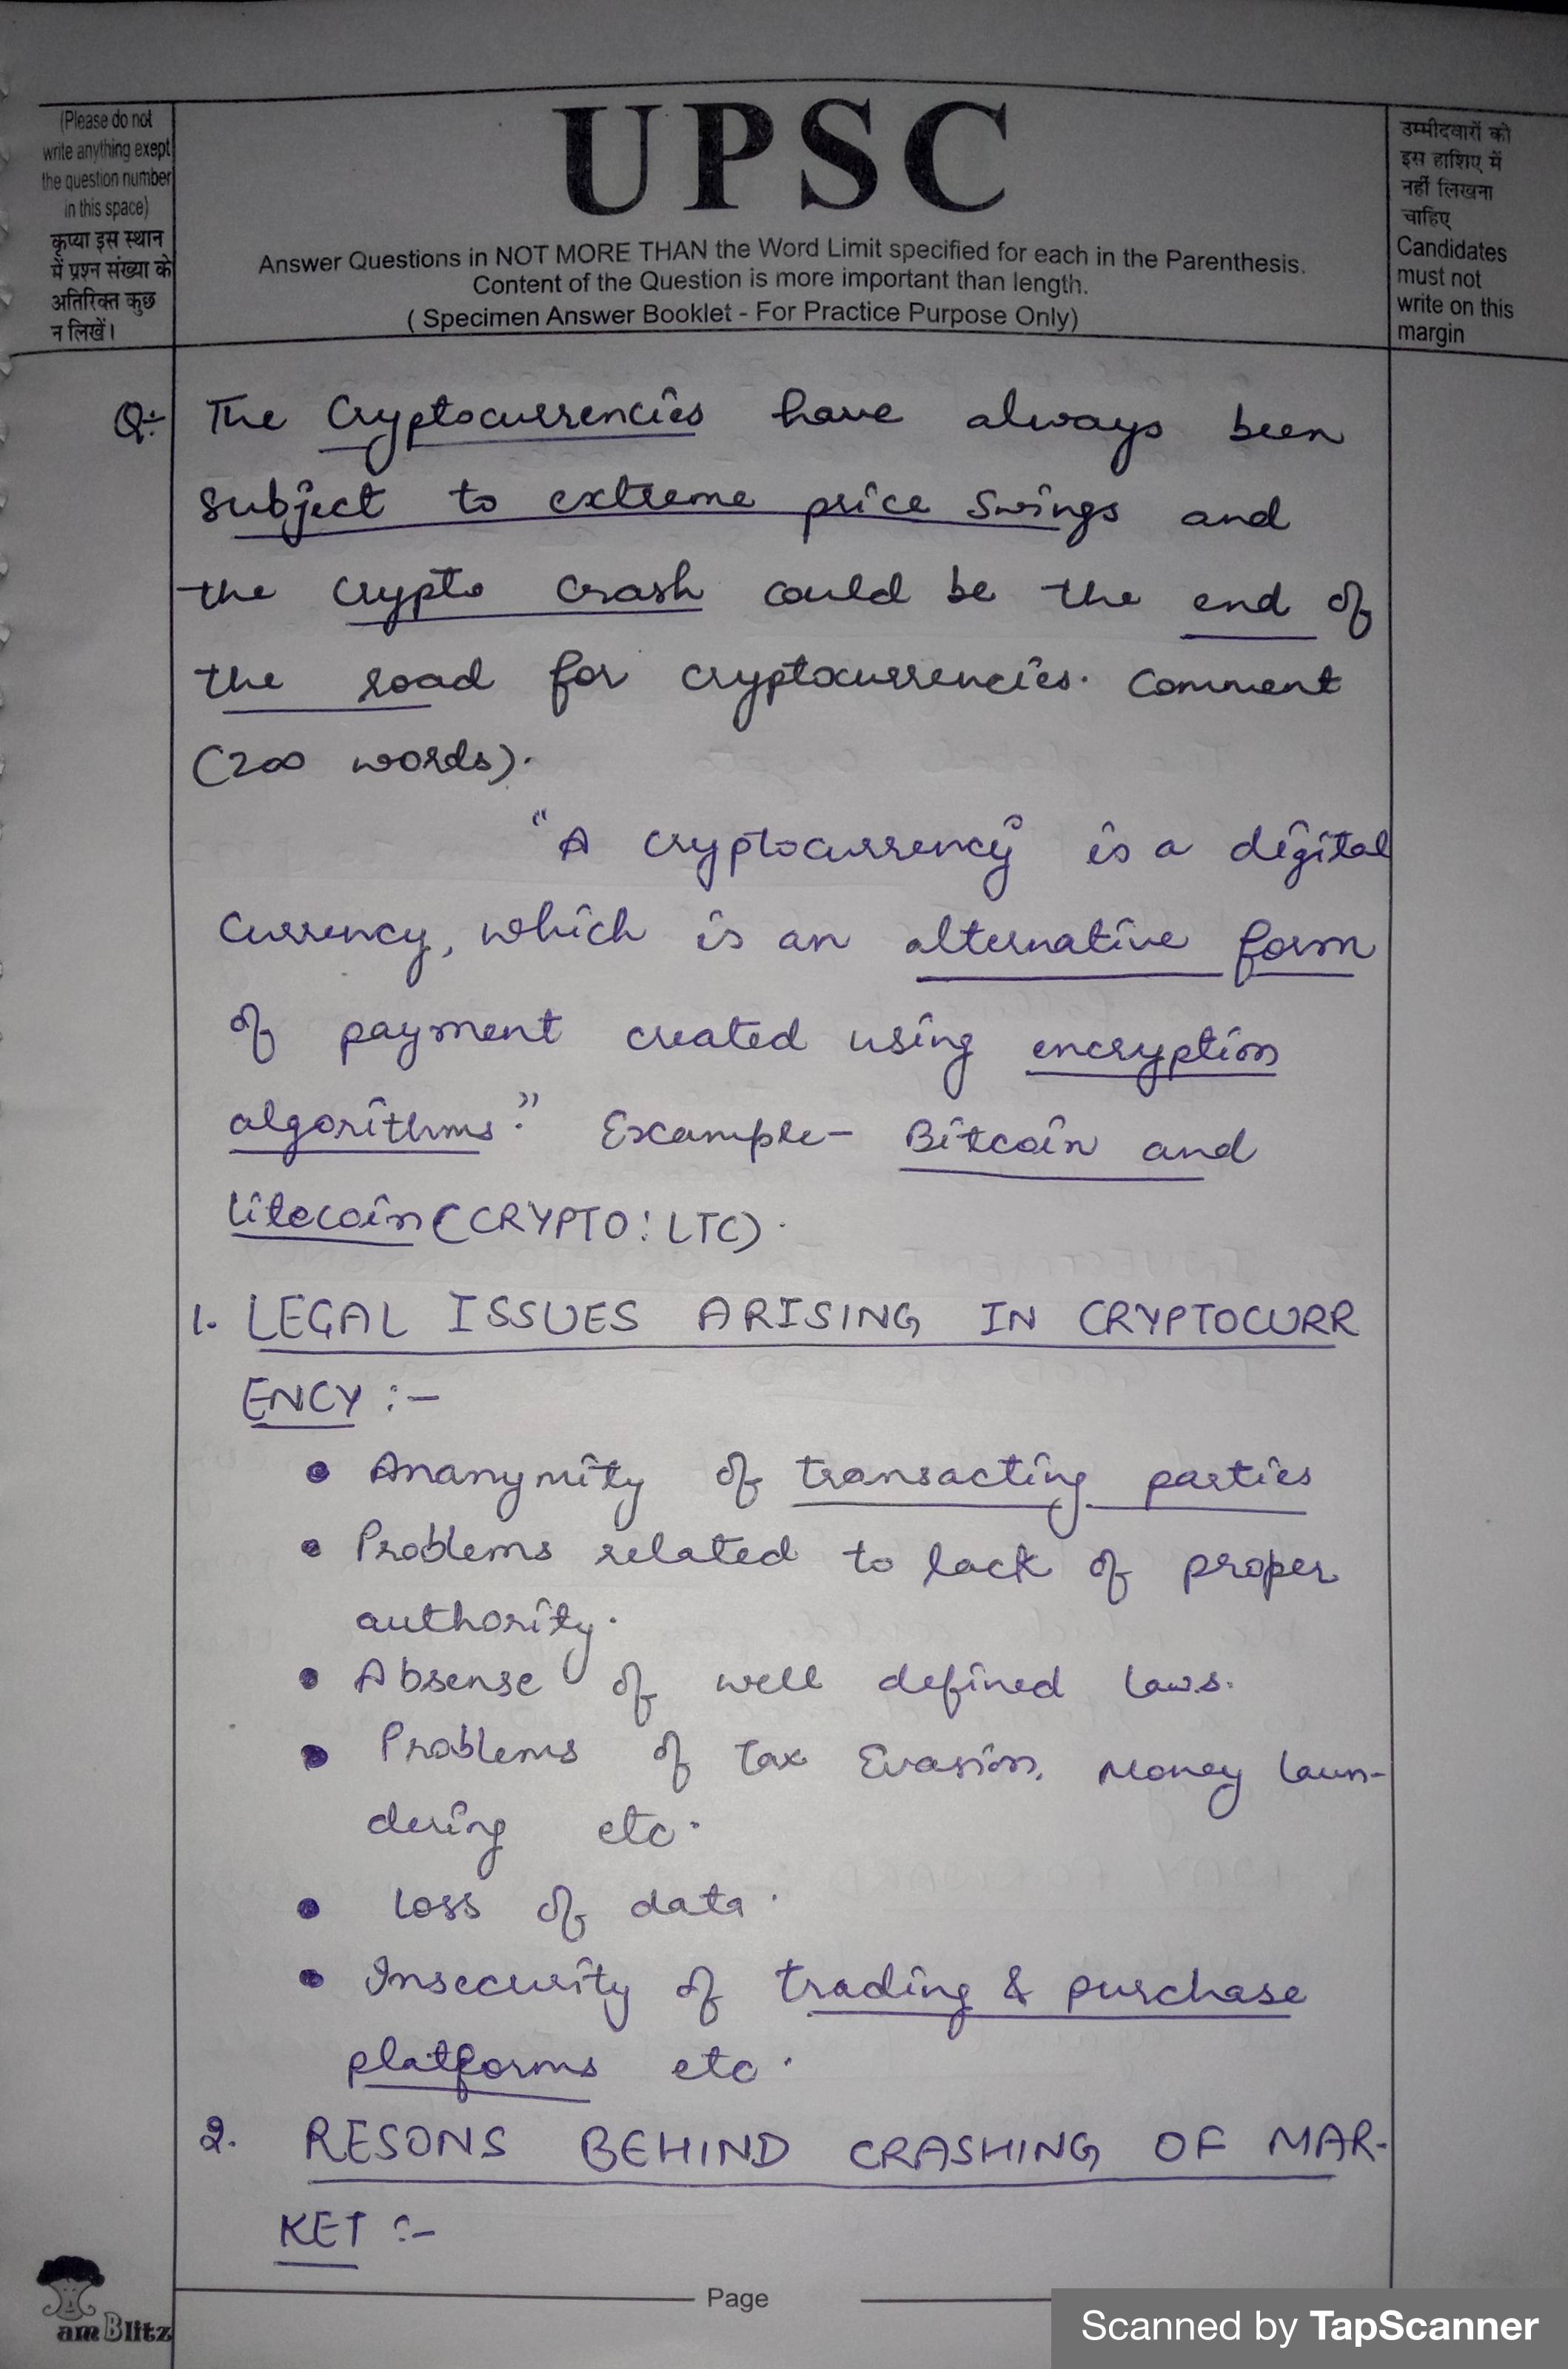 (Please do not
write anything exept
the question number
in this space)
कृप्या इस स्थान
में प्रश्न संख्या के
अतिरिक्त कुछ
न लिखें।
UPSC
Answer Questions in NOT MORE THAN the Word Limit specified for each in the Parenthesis.
Content of the Question is more important than length.
( Specimen Answer Booklet - For Practice Purpose Only)
उम्मीदवारों को
इस हाशिए में
नहीं लिखना
चाहिए
Candidates
must not
write on this
margin
Q:- The Cryptocurrencies have always been
subject to extreme price swings and
the crypto crash could be the end of
the road for cryptocurrencies. Comment
(200 words).
"A cryptocurrency is a digital
currency, which is an alternative form
of payment created using encryption
algorithms." Example- Bitcoin and
Litecoin (CRYPTO: LTC).
1. LEGAL ISSUES ARISING IN CRYPTOCURR
ENCY :-
• Ananymity of transacting parties
• Problems related to lack of proper
authority.
• Absense of well defined laws.
• Problems of Tax Evasion, Money laun-
dering etc.
• Loss of data.
• Insecurity of trading & purchase
platforms etc.
2. RESONS BEHIND CRASHING OF MAR-
KET :-
Page
am Blitz
Scanned by TapScanner